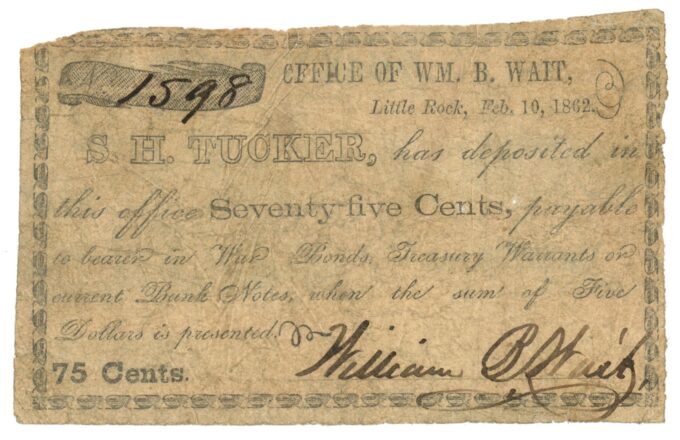 1598
OFFICE OF WM. B. WAIT,
Little Rock, Feb. 10, 1862.
S. H. TUCKER, has deposited in
this office Seventy-five Cents, payable
to bearer in War Bonds, Treasury Warrants or
current Bank Notes, when the sum of Five
Dollars is presented.
75 Cents. William B. Wait,